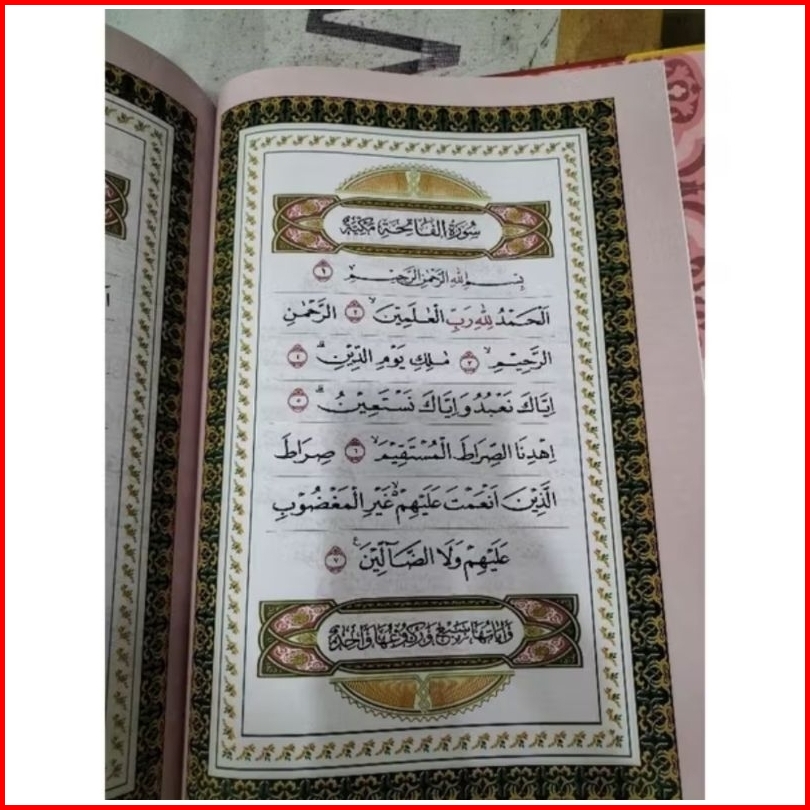 سُورَةُ الْفَاتِحَةِ مَكِّيَّةٌ
بِسْمِ اللّٰهِ الرَّحْمٰنِ الرَّحِيْمِ ١
اَلْحَمْدُ لِلّٰهِ رَبِّ الْعٰلَمِيْنَۙ ٢ الرَّحْمٰنِ
الرَّحِيْمِۙ ٣ مٰلِكِ يَوْمِ الدِّيْنِۗ ٤
اِيَّاكَ نَعْبُدُ وَاِيَّاكَ نَسْتَعِيْنُۗ ٥
اِهْدِنَا الصِّرَاطَ الْمُسْتَقِيْمَۙ ٦ صِرَاطَ
الَّذِيْنَ اَنْعَمْتَ عَلَيْهِمْۙ غَيْرِ الْمَغْضُوْبِ
عَلَيْهِمْ وَلَا الضَّاۤلِّيْنَ ٧
وَاٰيَاتُهَا سَبْعٌ وَرُكُوْعُهَا وَاحِدَةٌ